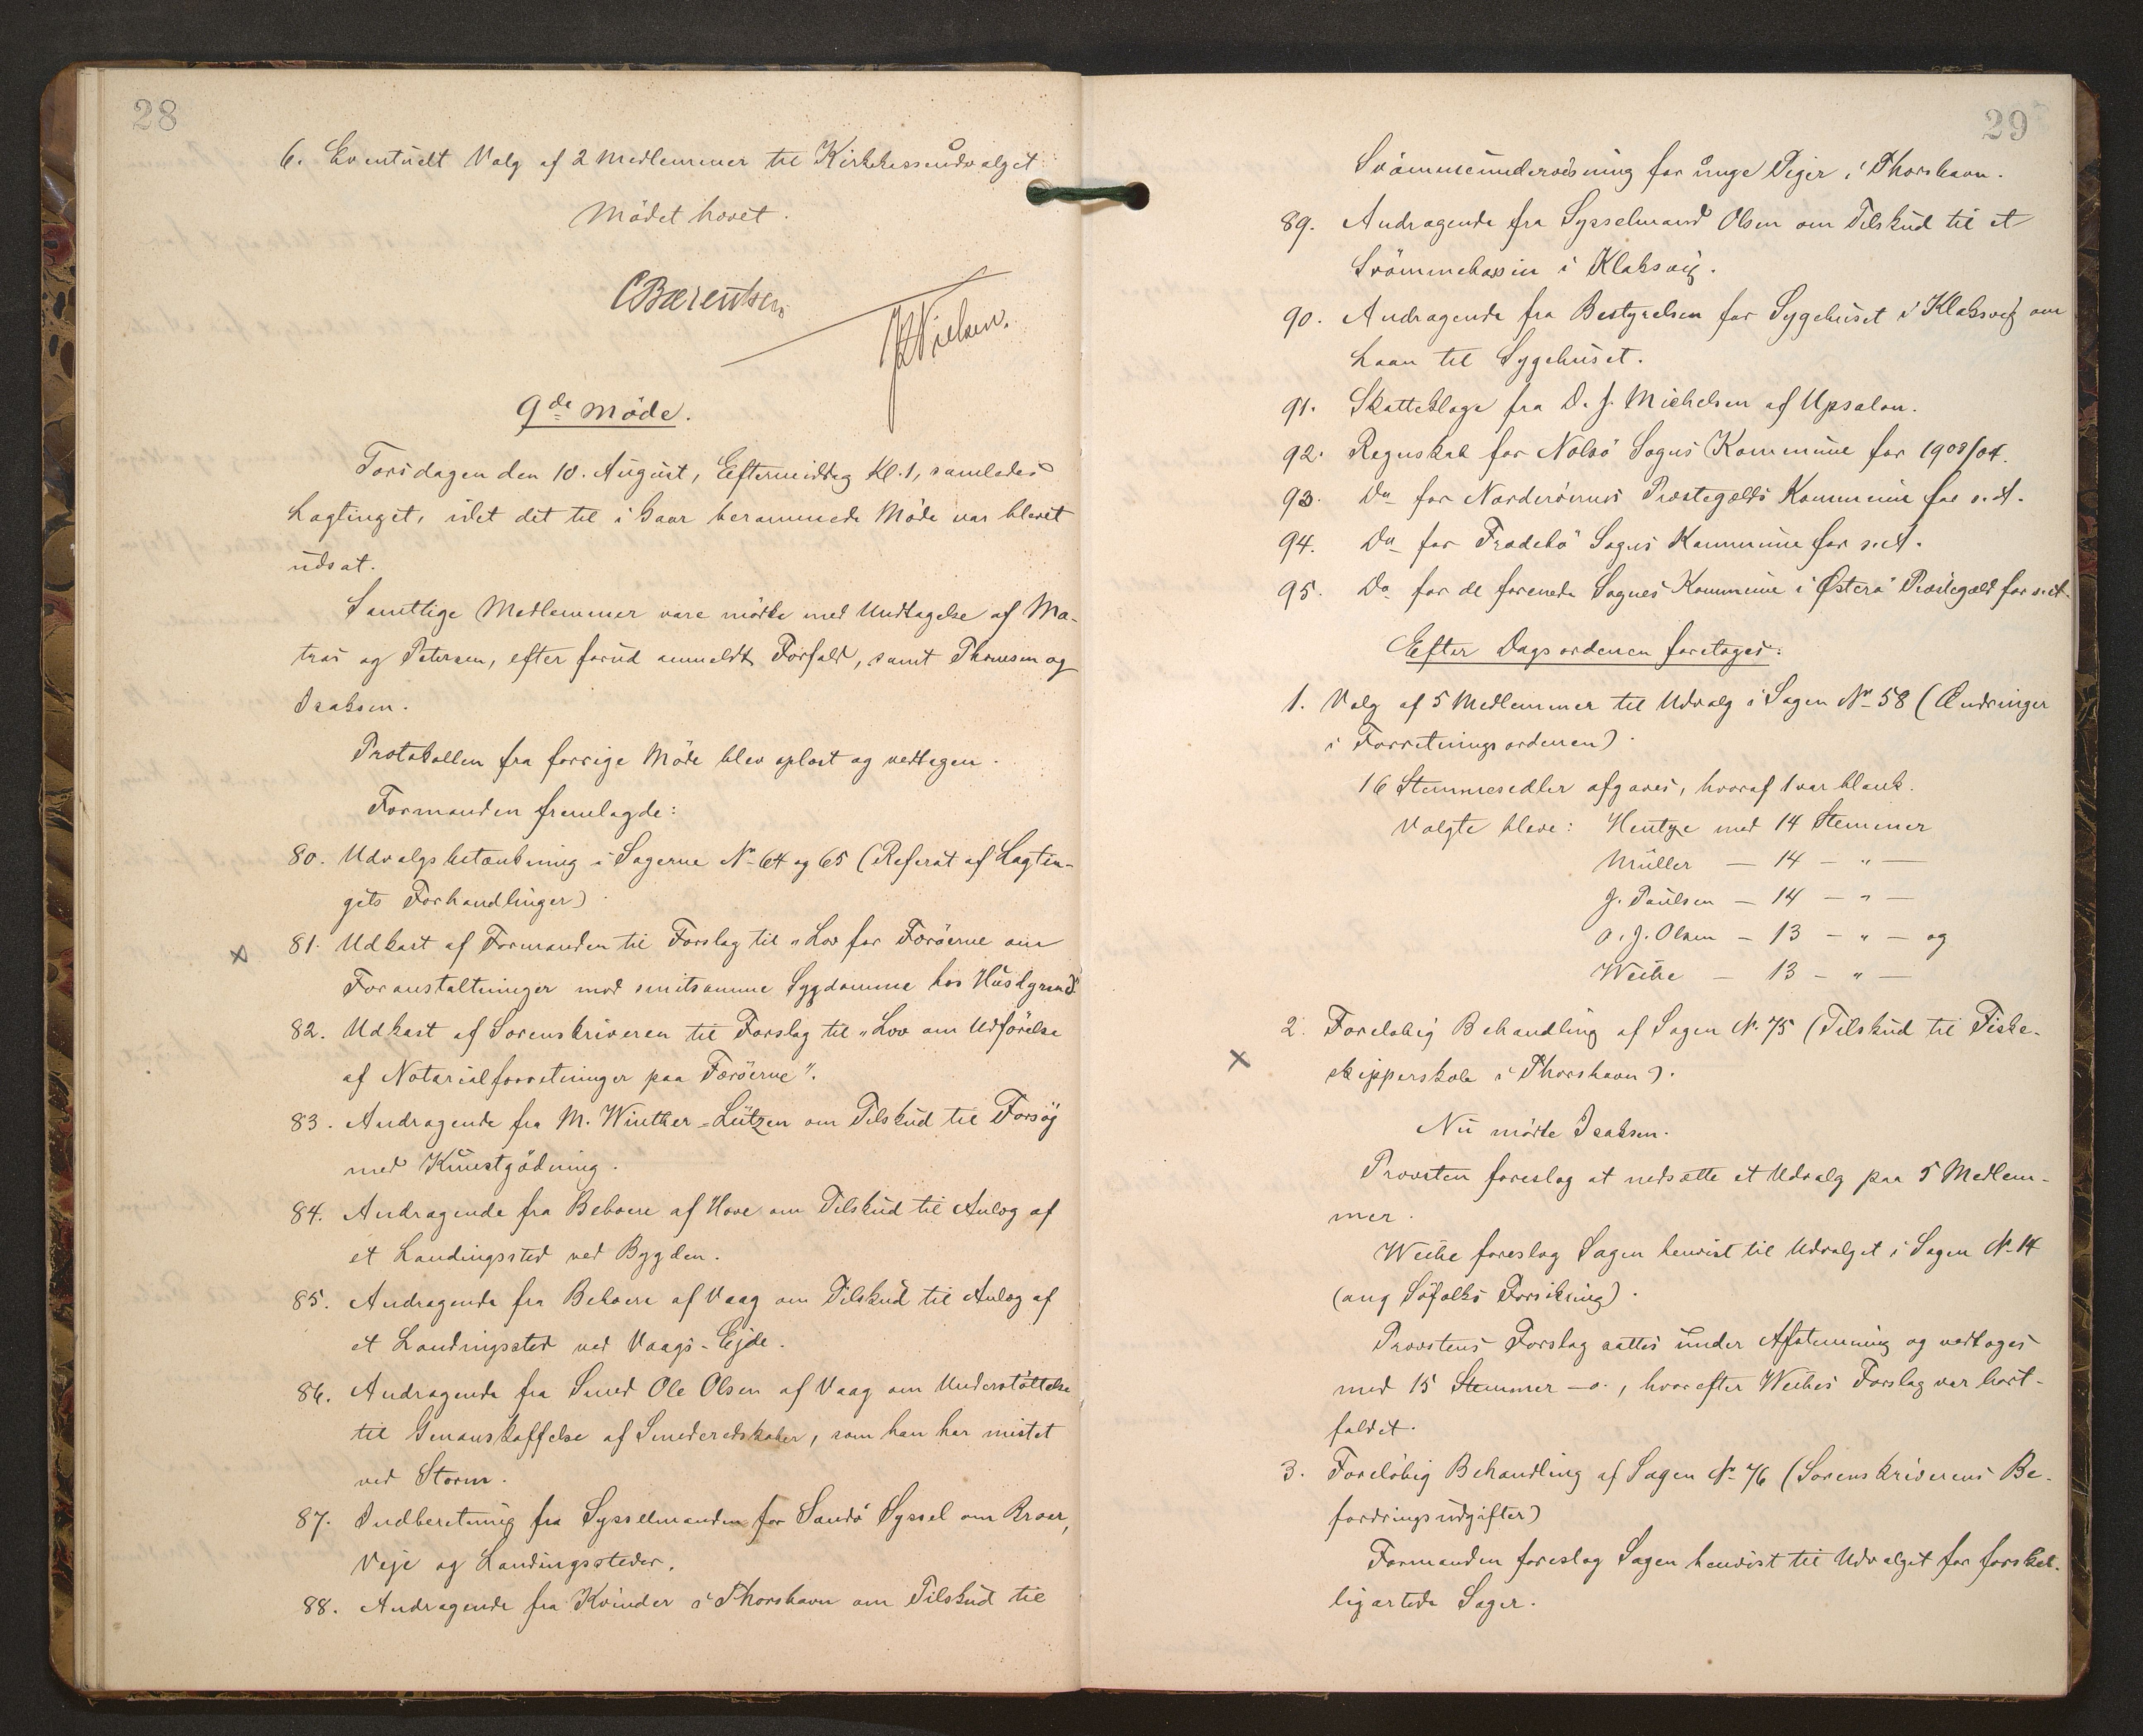 28
6. Eventuelt Valg af 2 Medlemmer til Kirkekasseudvalget
Mødet hævet.
C Bærentsen
Nielsen.
9de Møde.
Torsdagen den 10. August, Eftermiddag Kl. 1, samledes
Lagtinget, idet det til i Gaar berammede Møde var blevet
udsat.
Samtlige Medlemmer vare mødte med Undtagelse af Ma-
tras og Petersen, efter forud anmeldt Forfald, samt Thomsen og
Isaksen.
Protokollen fra forrige Møde blev oplæst og vedtagen.
Formanden fremlagde:
80. Udvalgsbetænkning i Sagerne No 64 og 65 (Referat af Lagtin-
gets Forhandlinger)
81. Udkast af Formanden til Forslag til „Lov for Færøerne om
Foranstaltninger mod smitsomme Sygdomme hos Huskreaturer
82. Udkast af Sorenskriveren til Forslag til „Lov om Udførelse
af Notarialforretninger paa Færøerne".
83. Andragende fra M. Winther-Lützen om Tilskud til Forsøg
med Kunstgødning.
84. Andragende fra Beboere af Hove om Tilskud til Anlæg af
et Landingssted ved Bygden.
85. Andragende fra Beboere af Vaag om Tilskud til Anlæg af
et Landingssted ved Vaags-Ejde.
86. Andragende fra Smed Ole Olsen af Vaag om Understøttelse
til Genanskaffelse af Smederedskaber, som han har mistet
ved Storm.
87. Indberetning fra Sysselmanden for Sandø Syssel om Broer,
Veje og Landingssteder.
88. Andragende fra Kvinder i Thorshavn om Tilskud til
29
Svømmeundervisning for unge Piger i Thorshavn.
89. Andragende fra Sysselmand Olsen om Tilskud til et
Svømmebassin i Klaksvig.
90. Andragende fra Bestyrelsen for Sygehuset i Klaksvig om
Laan til Sygehuset.
91. Skatteklage fra D. J. Michelsen af Upsalon.
92. Regnskab for Nolsø Sogns Kommune for 1903/04.
93. Do for Norderøernes Præstegælds Kommune for s. A.
94. Do for Frodebø Sogns Kommune for s. A.
95. Do for de forenede Sognes Kommune i Østerø Præstegæld for s. A.
Efter Dagsordenen foretoges:
1. Valg af 5 Medlemmer til Udvalg i Sagen No 58 (Ændringer
i Forretningsordenen).
16 Stemmesedler afgaves, hvoraf 1 var blank.
Valgte bleve: Hentze med 14 Stemmer
Müller — 14 — " —
J. Paulsen — 14 — " —
O. J. Olsen — 13 — " — og
Weihe — 13 — " —
2. Foreløbig Behandling af Sagen No 75 (Tilskud til Fiske-
skipperskole i Thorshavn).
Nu mødte Isaksen.
Provsten foreslog at nedsætte et Udvalg paa 5 Medlem-
mer.
Weihe foreslog Sagen henvist til Udvalget i Sagen No 14
(ang Søfolks Forsikring).
Provstens Forslag sattes under Afstemning og vedtoges
med 15 Stemmer — 0., hvorefter Weihes Forslag var bort-
faldet.
3. Foreløbig Behandling af Sagen No 76 (Sorenskriverens Be-
fordringsudgifter)
Formanden foreslog Sagen henvist til Udvalget for forskel-
ligartede Sager.